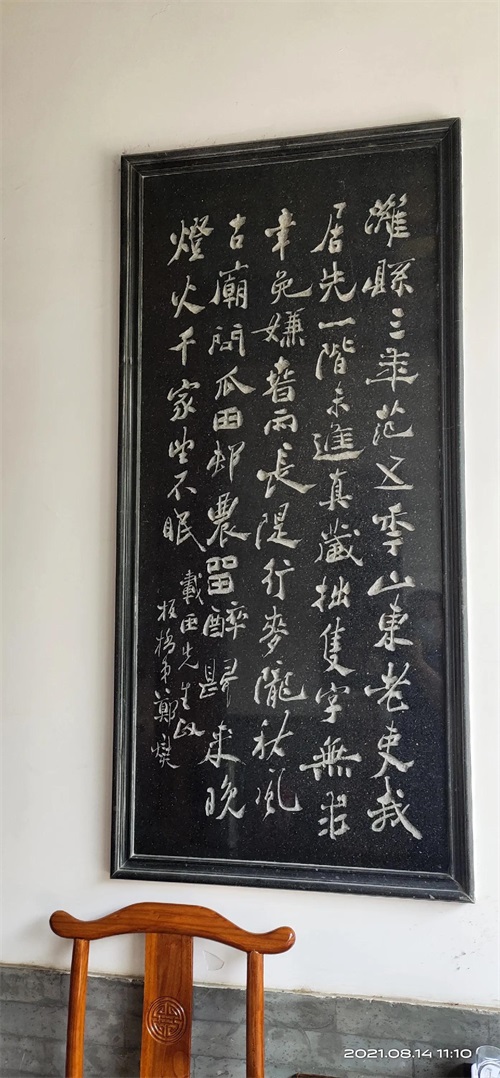 濰縣三年范五年山東老吏我
居先一階未進真藏拙隻字無求
幸免嫌春雨長隄行麥隴秋風
古廟問瓜田邨農留醉歸來晚
燈火千家望不眠
載田先生政
板橋弟鄭燮
2021.08.14 11:10